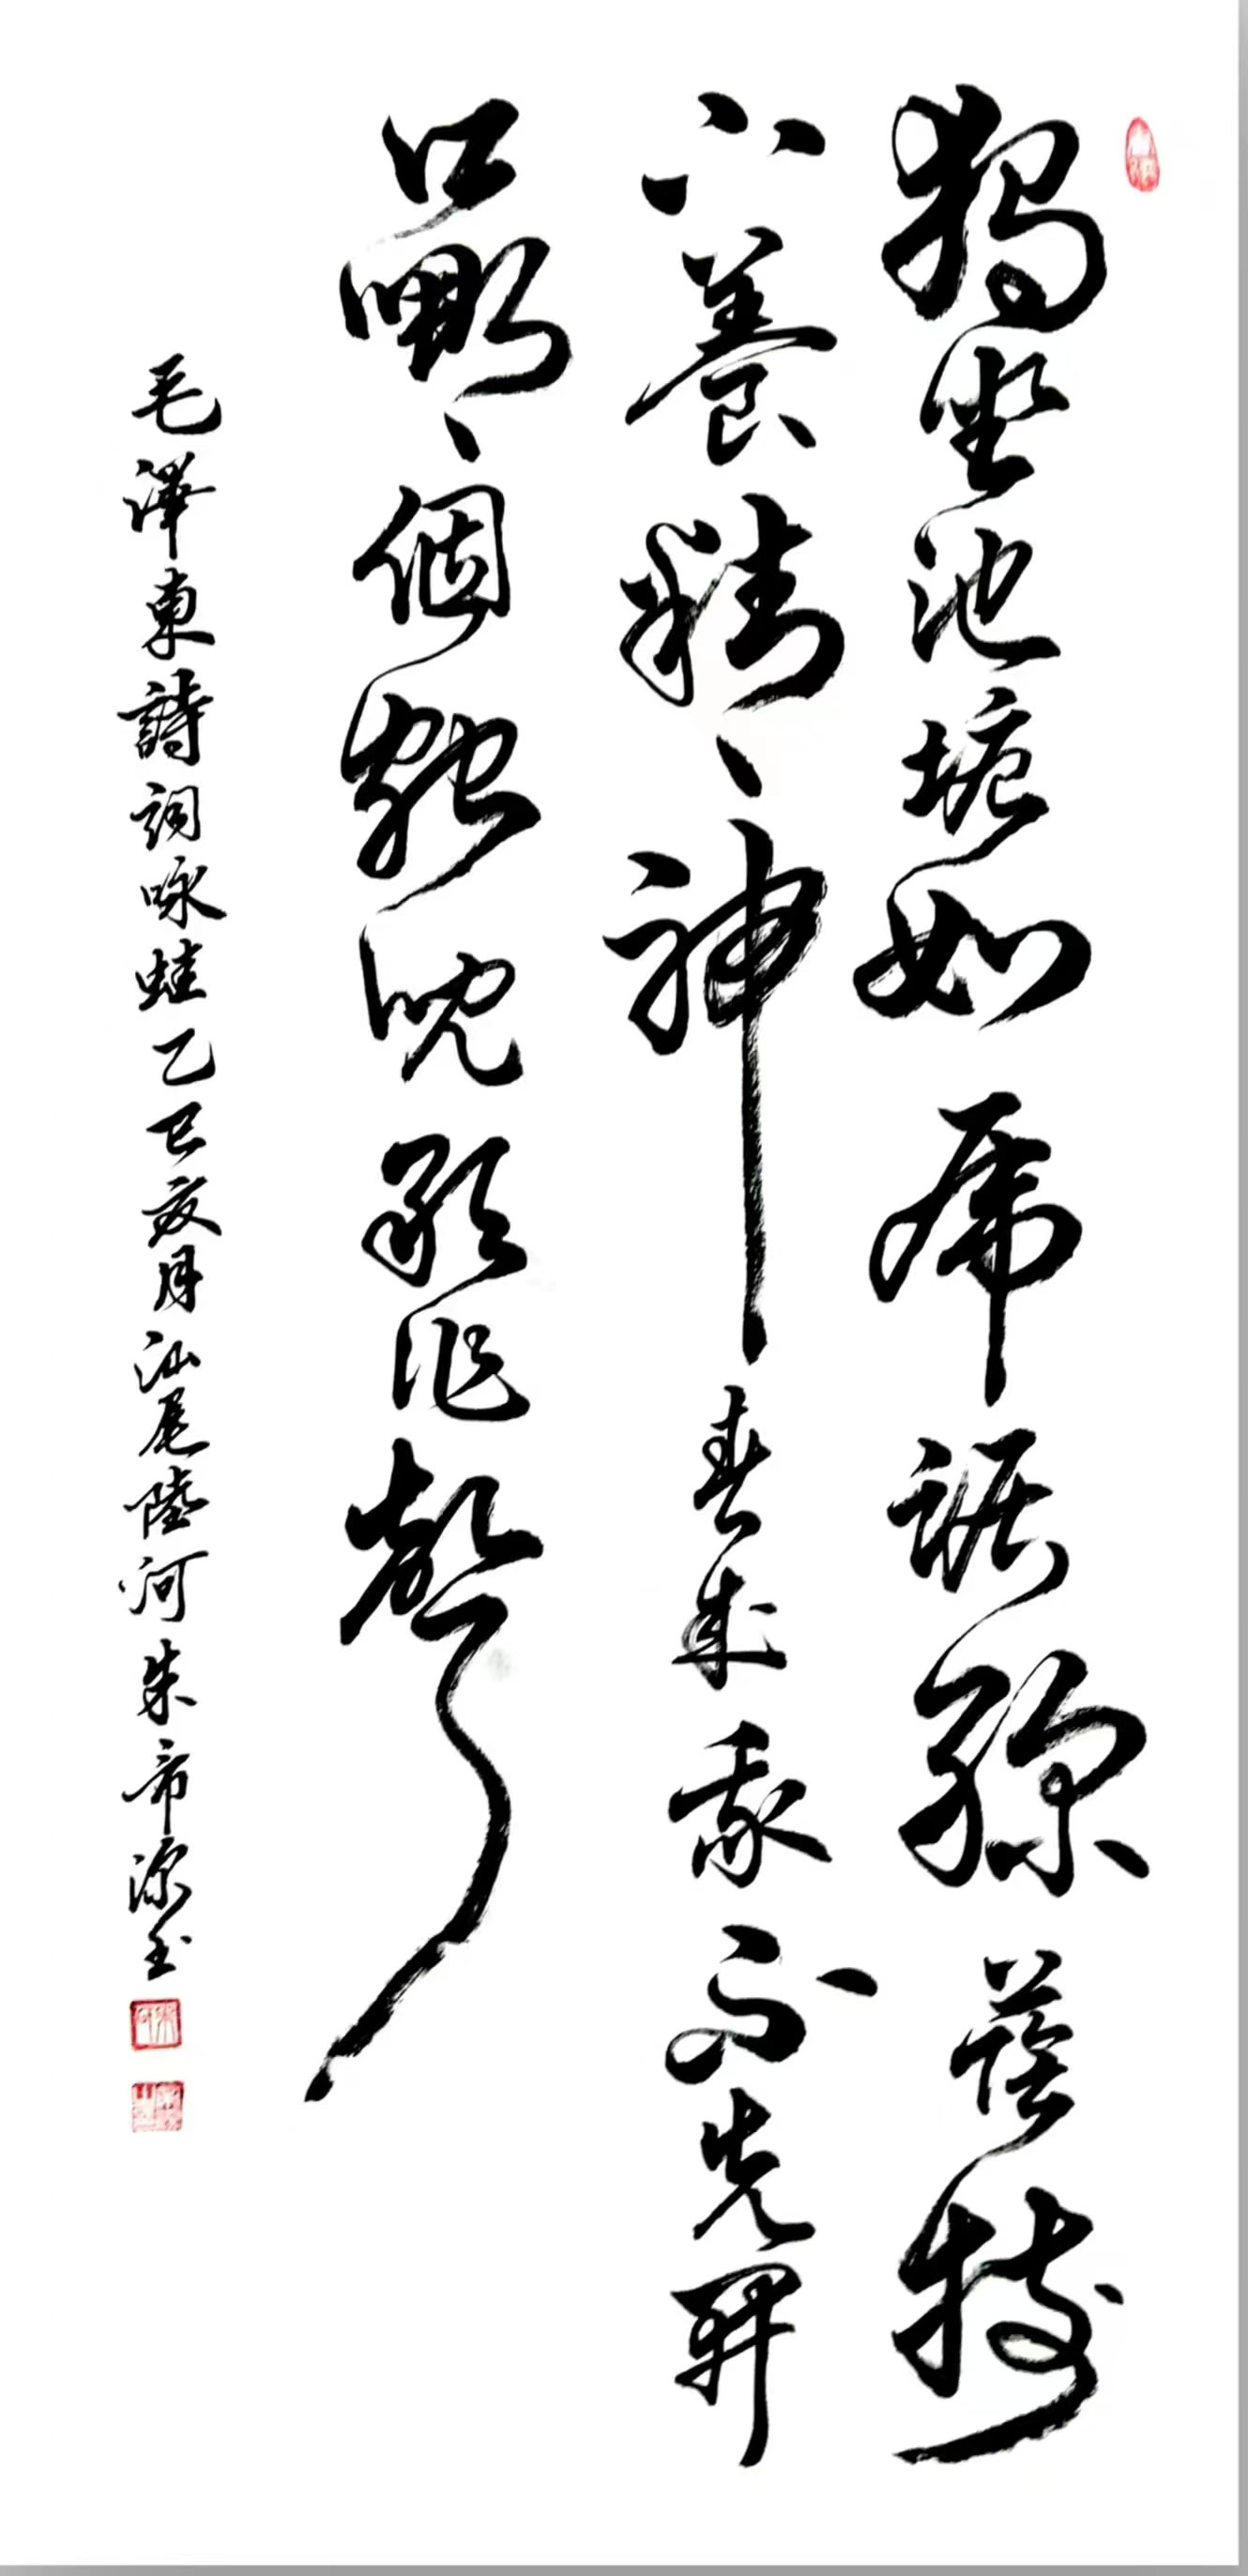 獨坐池塘如虎踞綠蔭樹
下養精神春來我不先開
口哪個蟲兒敢作聲
毛澤東詩詞咏蛙乙巳亥月汕尾陸河朱帝书